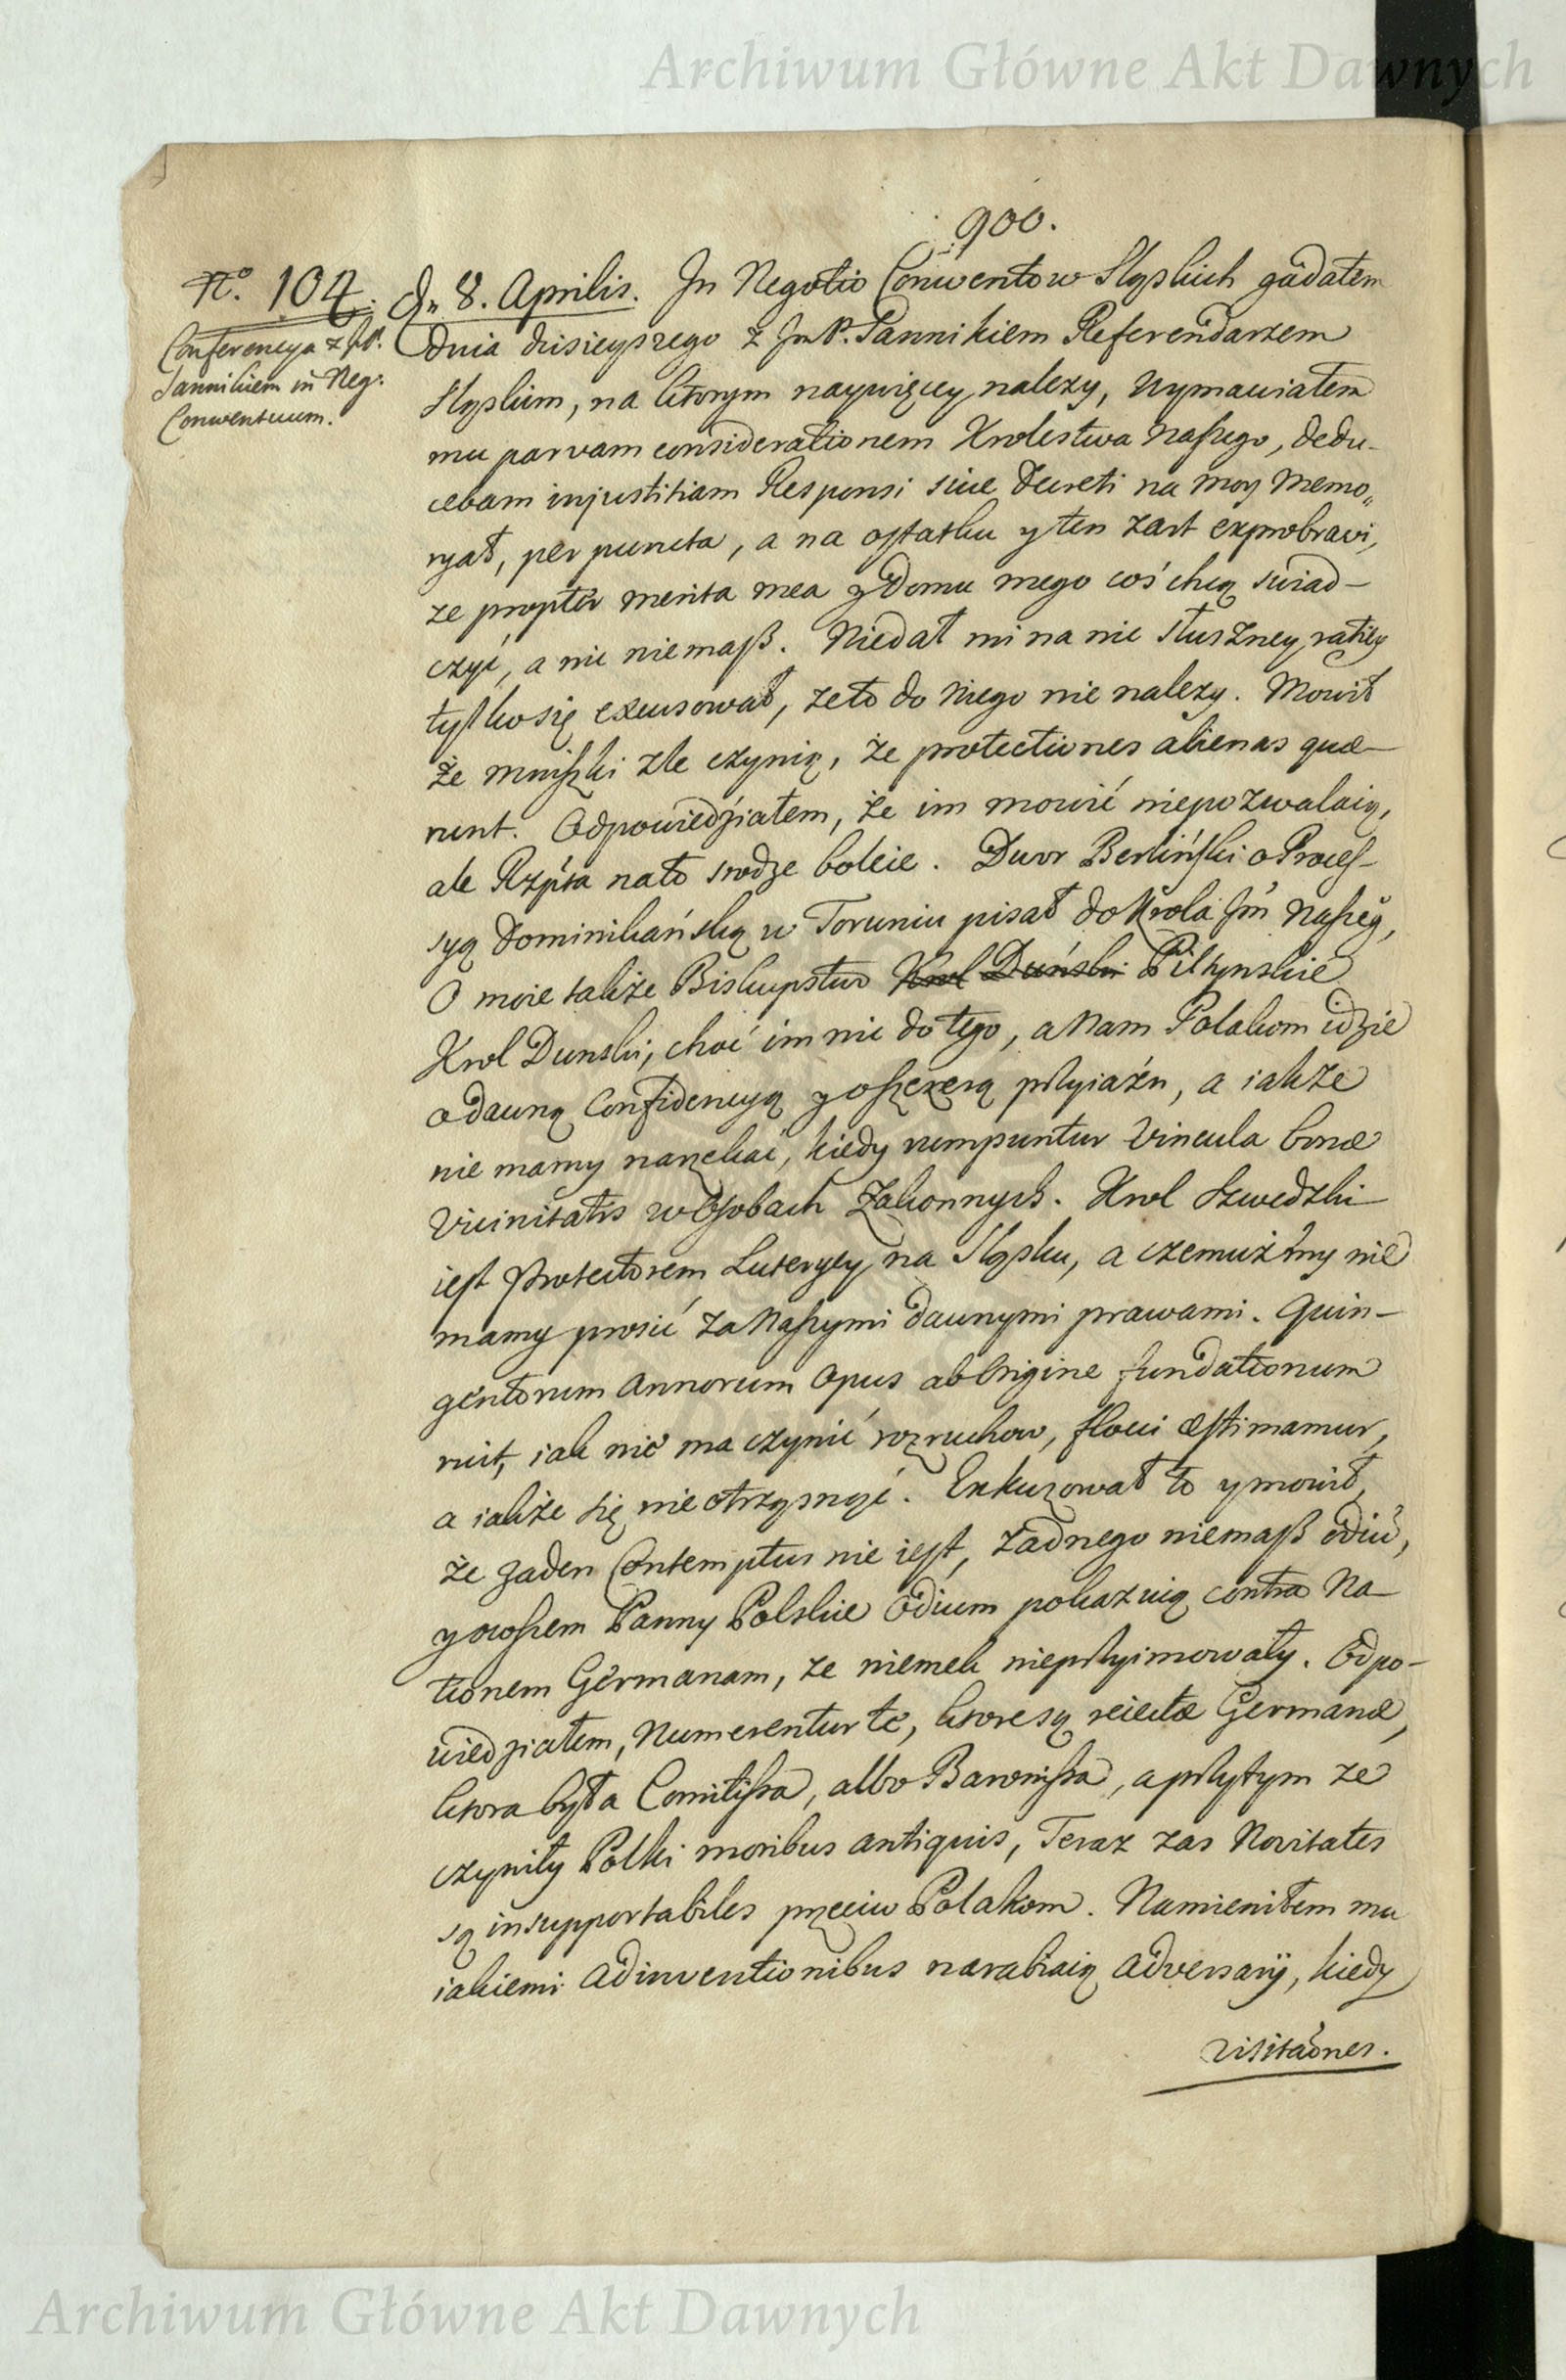 Archiwum Główne Akt Dawnych
900.
No. 104.
Conferencya z JP.
Jannikiem in Neg:
Conventuum.
D. 8. Aprilis. In Negotio Conwentow Sląskich gadałem
dnia dzisieyszego z Jm P. Jannikiem Referendarzem
Sląskim, na ktorym naywięcey należy, wymawiałem
mu parvam considerationem Krolestwa Naszego, dedu-
cebam injustitiam Responsi sive Decreti na moy Memo„
ryał, per puncta, a na ostatku y ten żart exprobravi,
ze propter merita mea y Domu mego coś chcą swiad-
czyć, a nic niemasz. Niedał mi na nic słuszney ratiey
tylko się excusował, ze to do Niego nie nalezy. Mowił
że mniszki zle czynią, że protectiones alienas quæ-
runt. Odpowiedziałem, że im mowić niepozwalaią,
ale Rzpta na to srodze boleie. Dwor Berliński o Proces-
syą Dominikańską w Toruniu pisał do Krola Jm Naszeg,
O moie także Biskupstwo Krol Duński Piltynskie
Krol Dunski, choć im nic do tego, a Nam Polakom idzie
o dawną Confidencyą y oszczerą przyiaźn, a iakże
nie mamy narzekać, kiedy rumpuntur vincula bonæ
vicinitatis w Osobach Zakonnych. Krol Szwedzki
iest Protectorem Luteryey na Sląsku, a czemuż my nie
mamy prosić za Naszymi dawnymi prawami. Quin-
gentorum Annorum Opus ab Origine fundationum
ruit, iak nie ma czynić rozruchow, flocci æstimamur,
a iakże się nie otrząsnąć. Exkuzował to y mowił,
że zaden Contemptus nie iest, żadnego niemasz odiu,
y owszem Panny Polskie Odium pokazuią contra Na-
tionem Germanam, ze niemek nieprzyimowały. Odpo-
wiedziałem, Numerentur te, ktore są reiectæ Germanæ,
ktora była Comitissa, albo Baronissa, a przytym ze
czyniły Polki moribus antiquis, Teraz zas Novitates
są insupportabiles przeciw Polakom. Namieniłem mu
iakiemi adinventionibus narabiaią adversarÿ, kiedy
visitaones.
Archiwum Główne Akt Dawnych